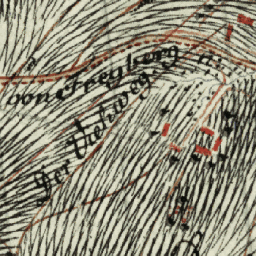 von Freyberg n
Der Viehweg